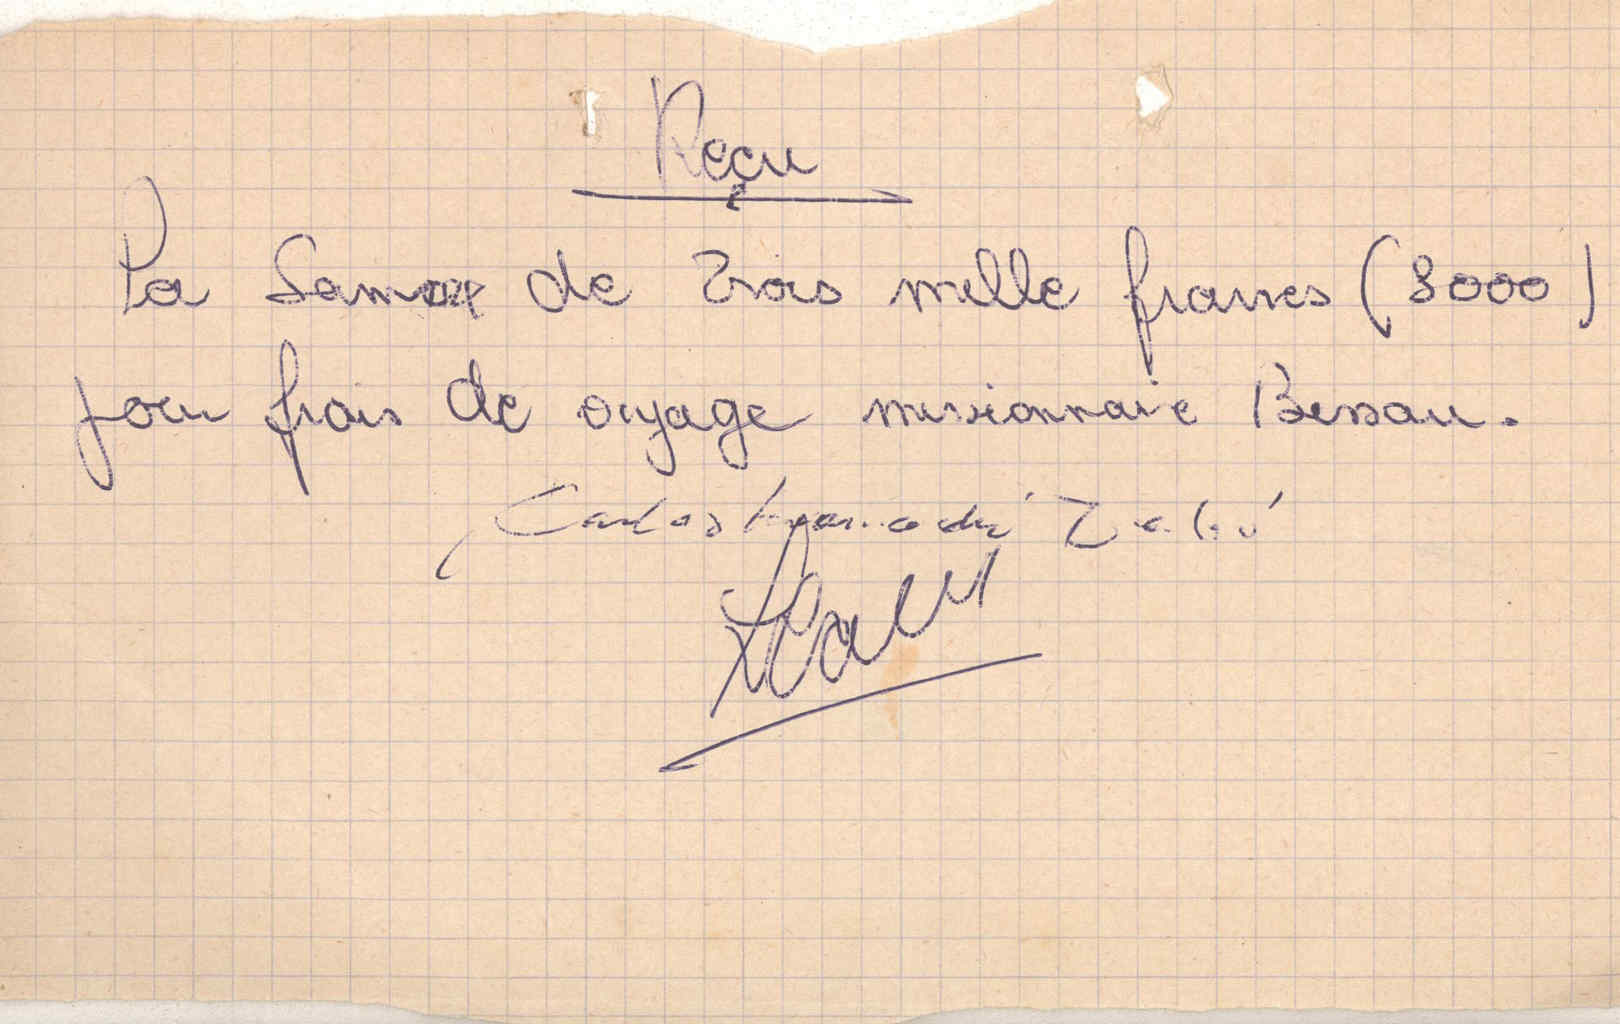 Reçu
La Somme de Trois mille francs (3000)
pour frais de voyage missionnaire Bissau.
Carlos